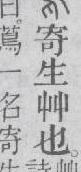 寄生艸也。
曰。蔦一名寄